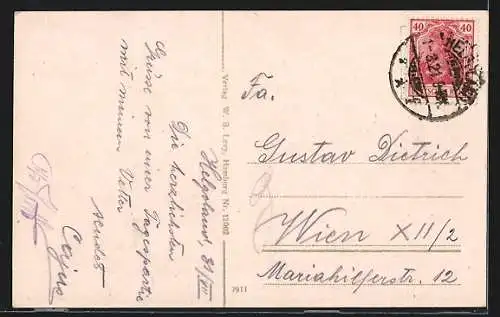 Helgoland, 31/VII
Die herzlichsten
Grüsse von einer Tagespartie
mit meinem Vetter
sendet
Cajus
Verlag W. B. Levy, Hamburg Nr. 11002
40 40
Fa.
Gustav Dietrich
Wien XII/2
Mariahilferstr. 12
7911